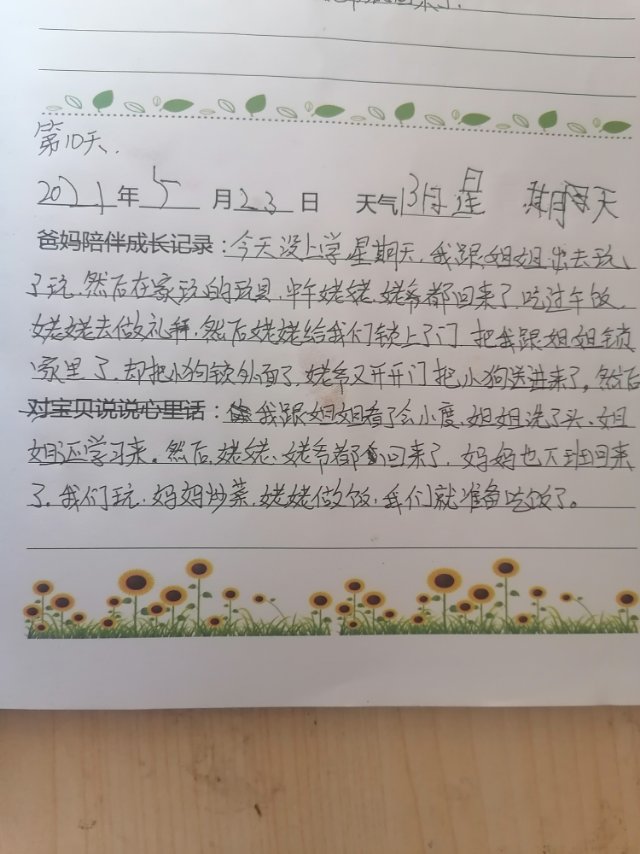 回来了.
第10天.
2021年5月23日 天气阴 星期天
爸妈陪伴成长记录：今天没上学星期天，我跟姐姐出去玩
了玩，然后在家玩的玩具，中午姥姥、姥爷都回来了，吃过午饭，
姥姥去做礼拜，然后姥姥给我们锁上了门 把我跟姐姐锁
家里了，却把小狗锁外面了，姥爷又开开门把小狗送进来了，然后
对宝贝说说心里话：我跟姐姐看了会小度，姐姐洗了头、姐
姐还学习来。然后，姥姥、姥爷都回来了，妈妈也下班回来
了，我们玩，妈妈炒菜，姥姥做饭，我们就准备吃饭了。